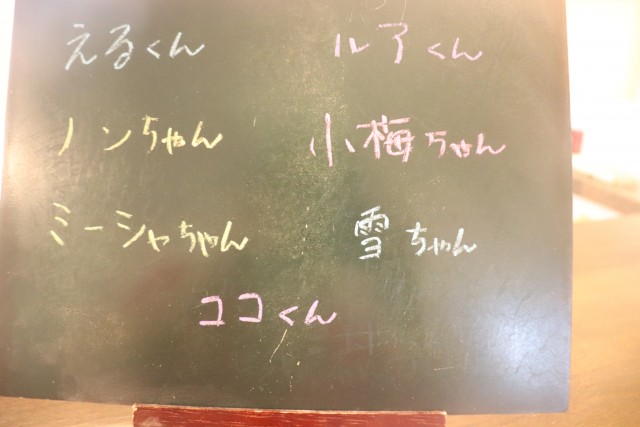 えるくん ルアくん
ノンちゃん 小梅ちゃん
ミーシャちゃん 雪ちゃん
ココくん